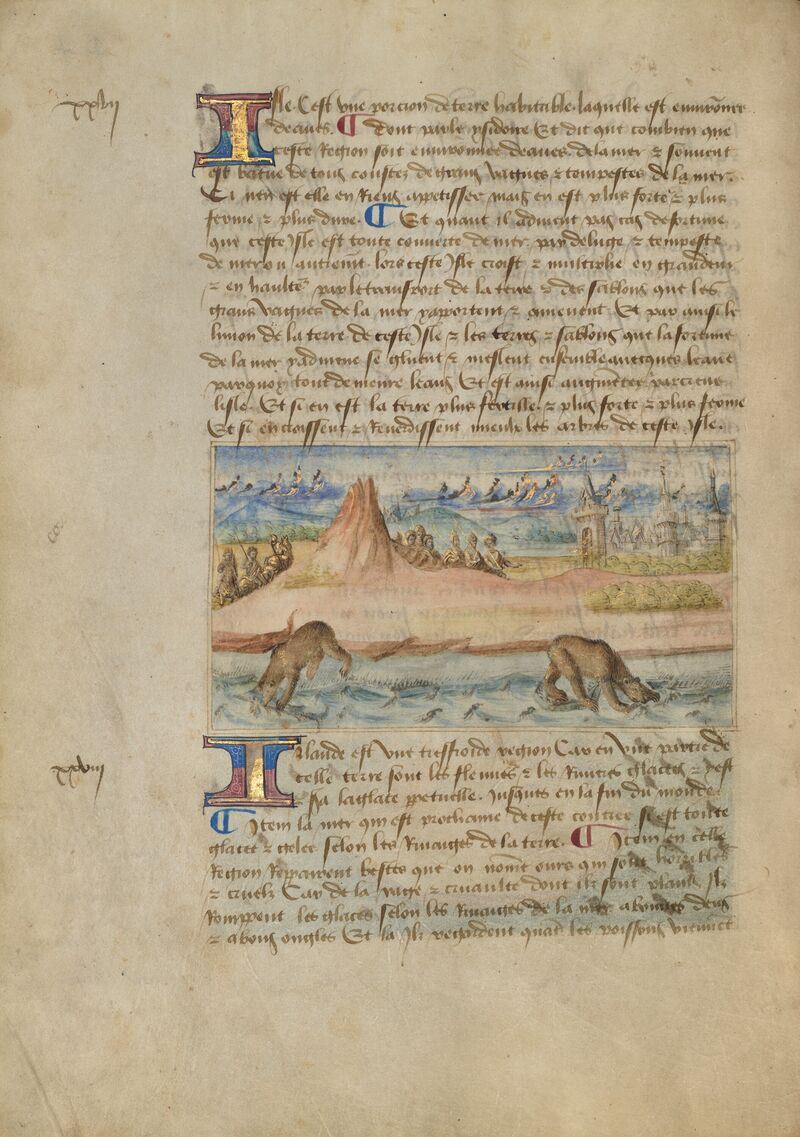 xxvii
Isle. C'est une porcion de terre habitable. laquelle est environnee
deaues. Dont parle ysidore. Et dit que combien que
ceste Region soit environnee deaues. de la mer z souvent
est batue de tous coustez de grans vagues z tempestes de la mer.
Si nen est elle en Riens appetissee mais en est plus forte z plus
ferme z plus dure. Et quant il advient par cas de fortune
que ceste isle est toute couverte de mer par deluge z tempeste
de mer ou autremt. lors ceste isle croist z multiplie en grandeur
z en haulte par le transport de la terre z des sablons que les
grans vagues de la mer y apportent z amenent Et par ainsi le
limon de la terre de ceste isle z les terres z sablons que la fortune
de la mer y admene se gluent z meslent ensemble avecques leaue
par quoy tout demeure leans Et est ainsi augmentee par
lisle. Et si en est la terre plus fertille. z plus forte z plus ferme
Et si en croissent z Reverdissent mieulx les arbres de ceste isle.
xxviii
Islande est une tresfroide region Car en une partie de
celle terre sont les fleuves z les Rivieres glacees z y est
la glace ppetuelle. jusques en la fin du monde.
Item la mer qui est prochaine de ceste contree est toute
glacee z gelee selon les Rivages de la terre. Item en celle
Region Repairent bestes que on nome ours qui sont horribles
z cruelz Car de la rage z cruaulte dont ilz sont plains Ilz
Rompent les glaces selon les Rivages de la mer a bonnes dens
z a bons ongles Et la ilz regardent quat les poissons viennet